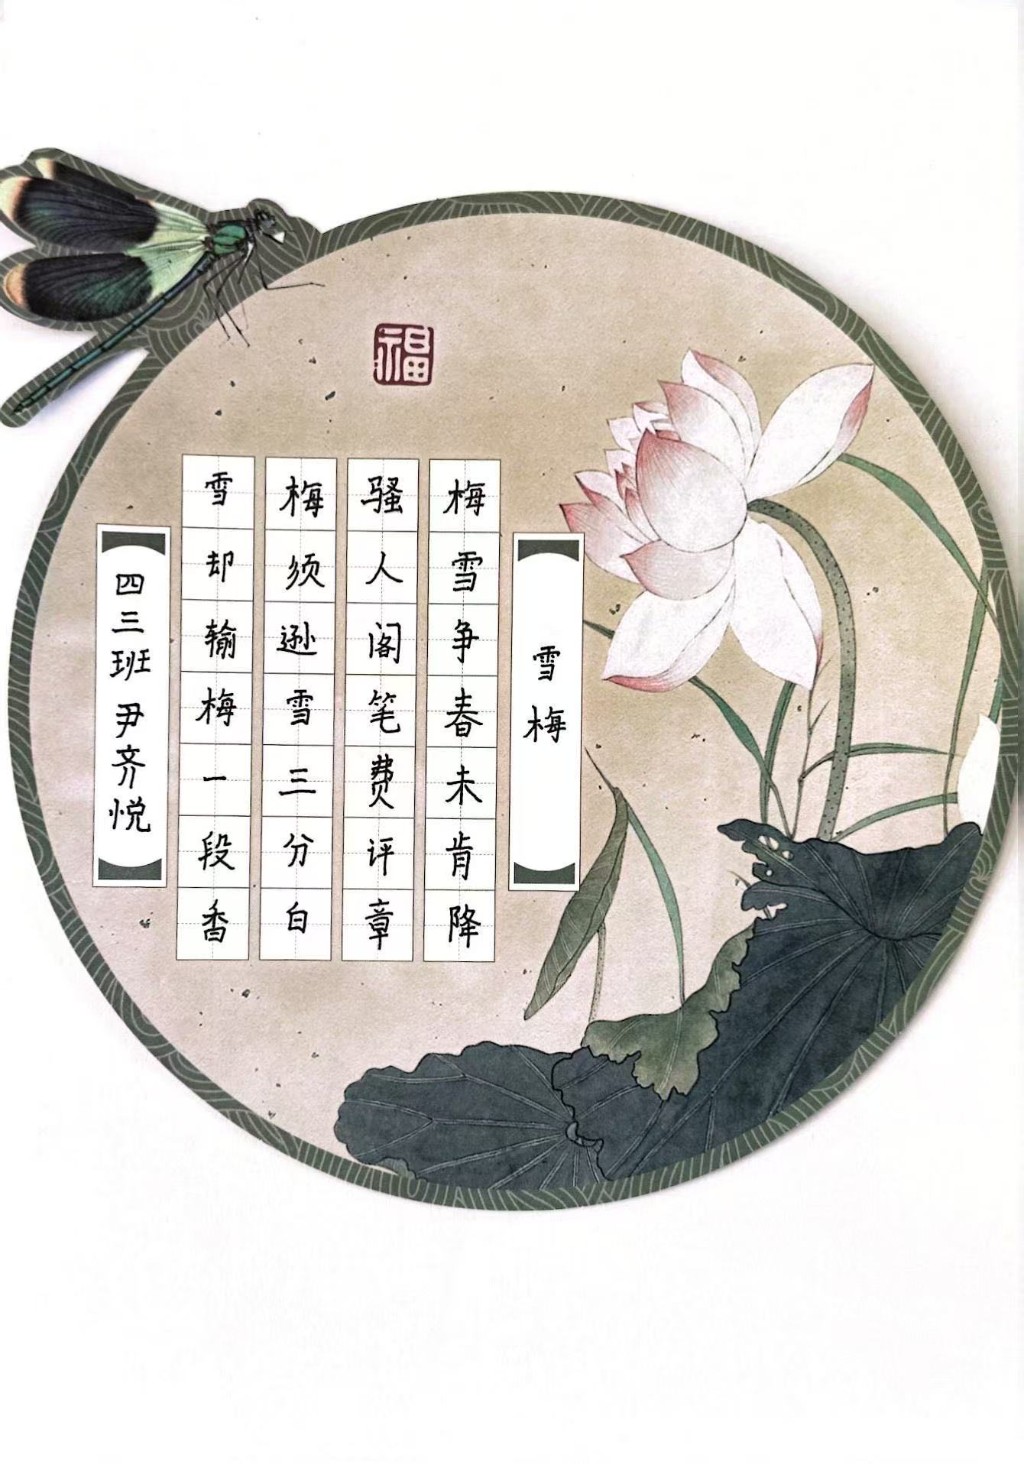 福
雪梅
梅雪争春未肯降
骚人阁笔费评章
梅须逊雪三分白
雪却输梅一段香
四三班 尹齐悦